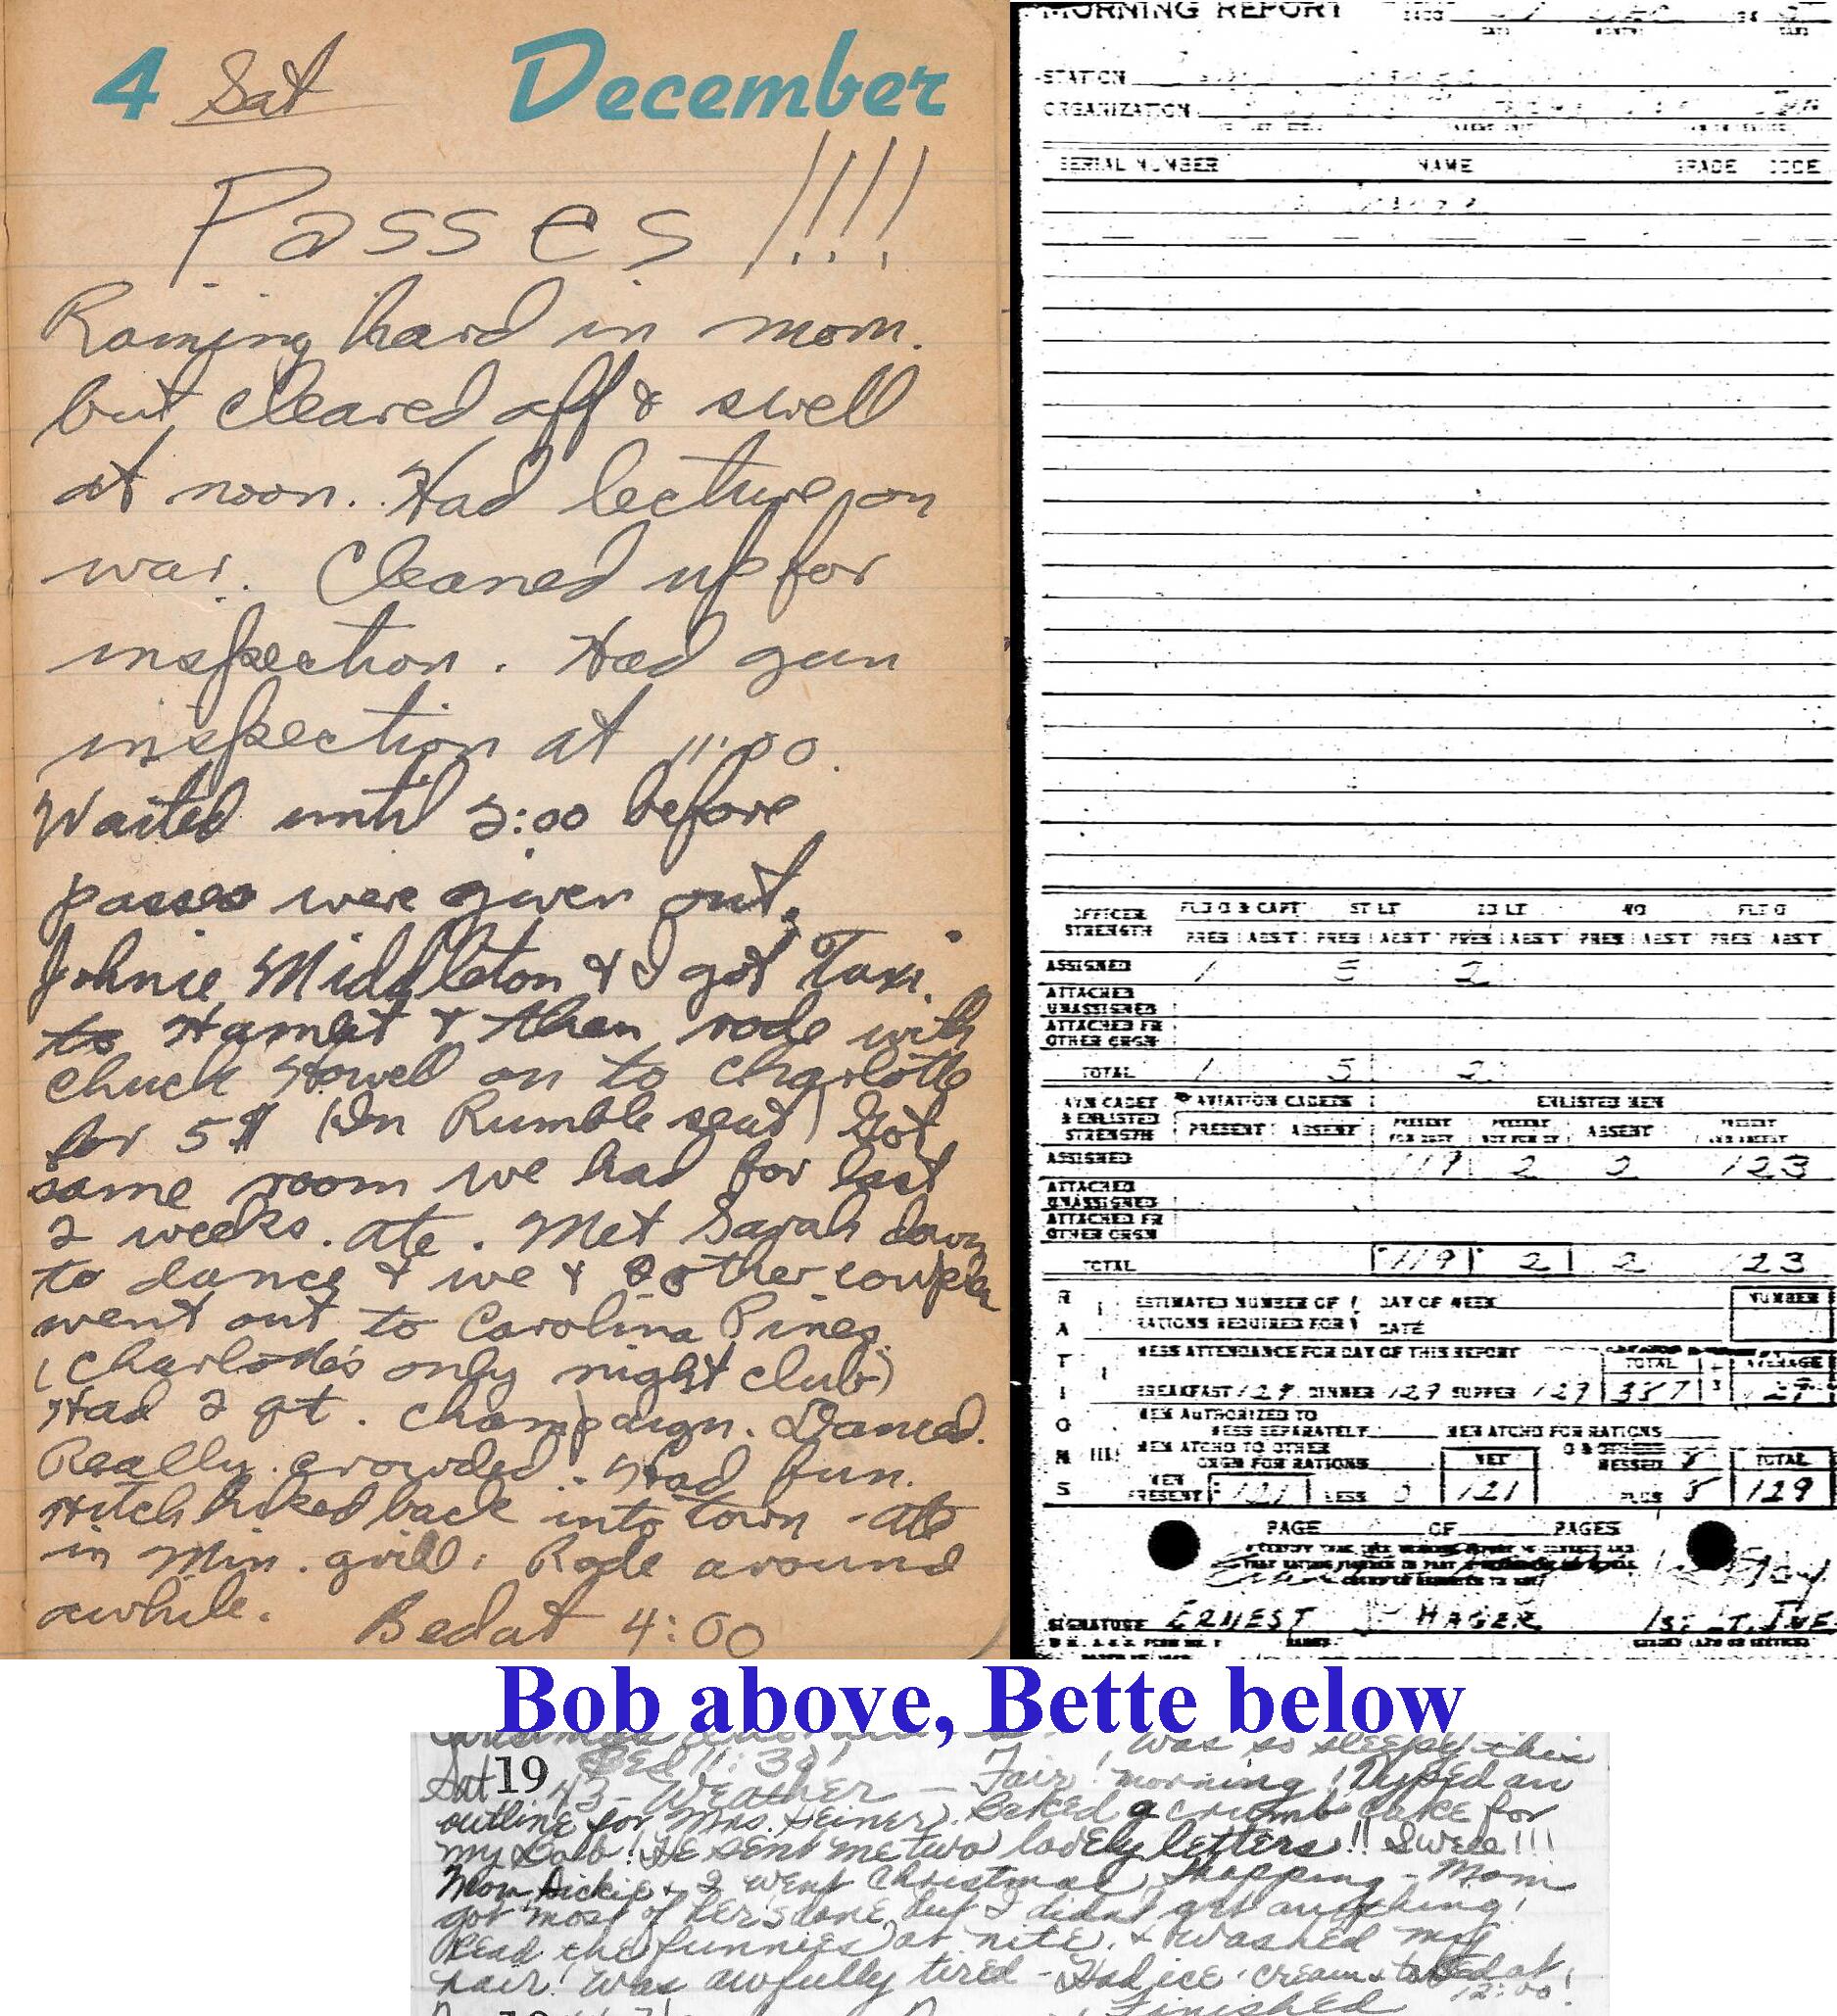 4 Sat December
Passes !!!!
Raining hard in morn.
but cleared off & swell
at noon. Had lecture on
war. Cleaned up for
inspection. Had gun
inspection at 11:00.
Waited until 2:00 before
passes were given out.
Johnie Middleton & I got Taxi
to Hamlet & then rode with
Chuck Howell on to Charlotte
for 5$ (In Rumble seat) Got
same room we had for last
2 weeks. Ate. Met Sarah down
to dance & we & other couples
went out to Carolina Pines.
(Charlotte's only night club)
Had 2 qt. Champaign. Danced.
Really crowded. Had fun.
Hitch hiked back into town - ate
in Min. grill. Rode around
awhile. Bed at 4:00
MORNING REPORT
STATION
ORGANIZATION
SERIAL NUMBER NAME GRADE CODE
OFFICER STRENGTH
FLD O & CAPT 1ST LT 2D LT WO FLT O
PRES ABST PRES ABST PRES ABST PRES ABST PRES ABST
ASSIGNED 1 5 2
ATTACHED UNASSIGNED
ATTACHED FR OTHER ORGN
TOTAL 1 5 2
AVN CADET & ENLISTED STRENGTH
AVIATION CADETS ENLISTED MEN
PRESENT ABSENT PRESENT FOR DUTY PRESENT NOT FOR DY ABSENT PRESENT AND ABSENT
ASSIGNED 119 2 2 123
ATTACHED UNASSIGNED
ATTACHED FR OTHER ORGN
TOTAL 119 2 2 123
RATIONS
ESTIMATED NUMBER OF RATIONS REQUIRED FOR DAY OF WEEK DATE NUMBER
MESS ATTENDANCE FOR DAY OF THIS REPORT TOTAL AVERAGE
BREAKFAST 129 DINNER 129 SUPPER 129 387 3 129
MEN AUTHORIZED TO MESS SEPARATELY MEN ATCHD FOR RATIONS
III MEN ATCHD TO OTHER ORGN FOR RATIONS NET MESSED 8 TOTAL
MEN PRESENT 121 LESS 0 121 PLUS 8 129
PAGE OF PAGES
SIGNATURE ERNEST J HAGER 1ST LT. INF
Bob above, Bette below
was so sleepy this
Bed 11:30!
Sat 19 43 - Weather - Fair! morning! Typed an
outline for Mrs. Heiner. Baked a crumb cake for
my Bob! He sent me two lovely letters!! Swell!!!
Mom, Dickie & I went Christmas Shopping - Mom
got most of hers done but I didn't get anything!
Read the funnies at nite & washed my
hair! Was awfully tired - Had ice cream & Bed at
12:00!
Finished